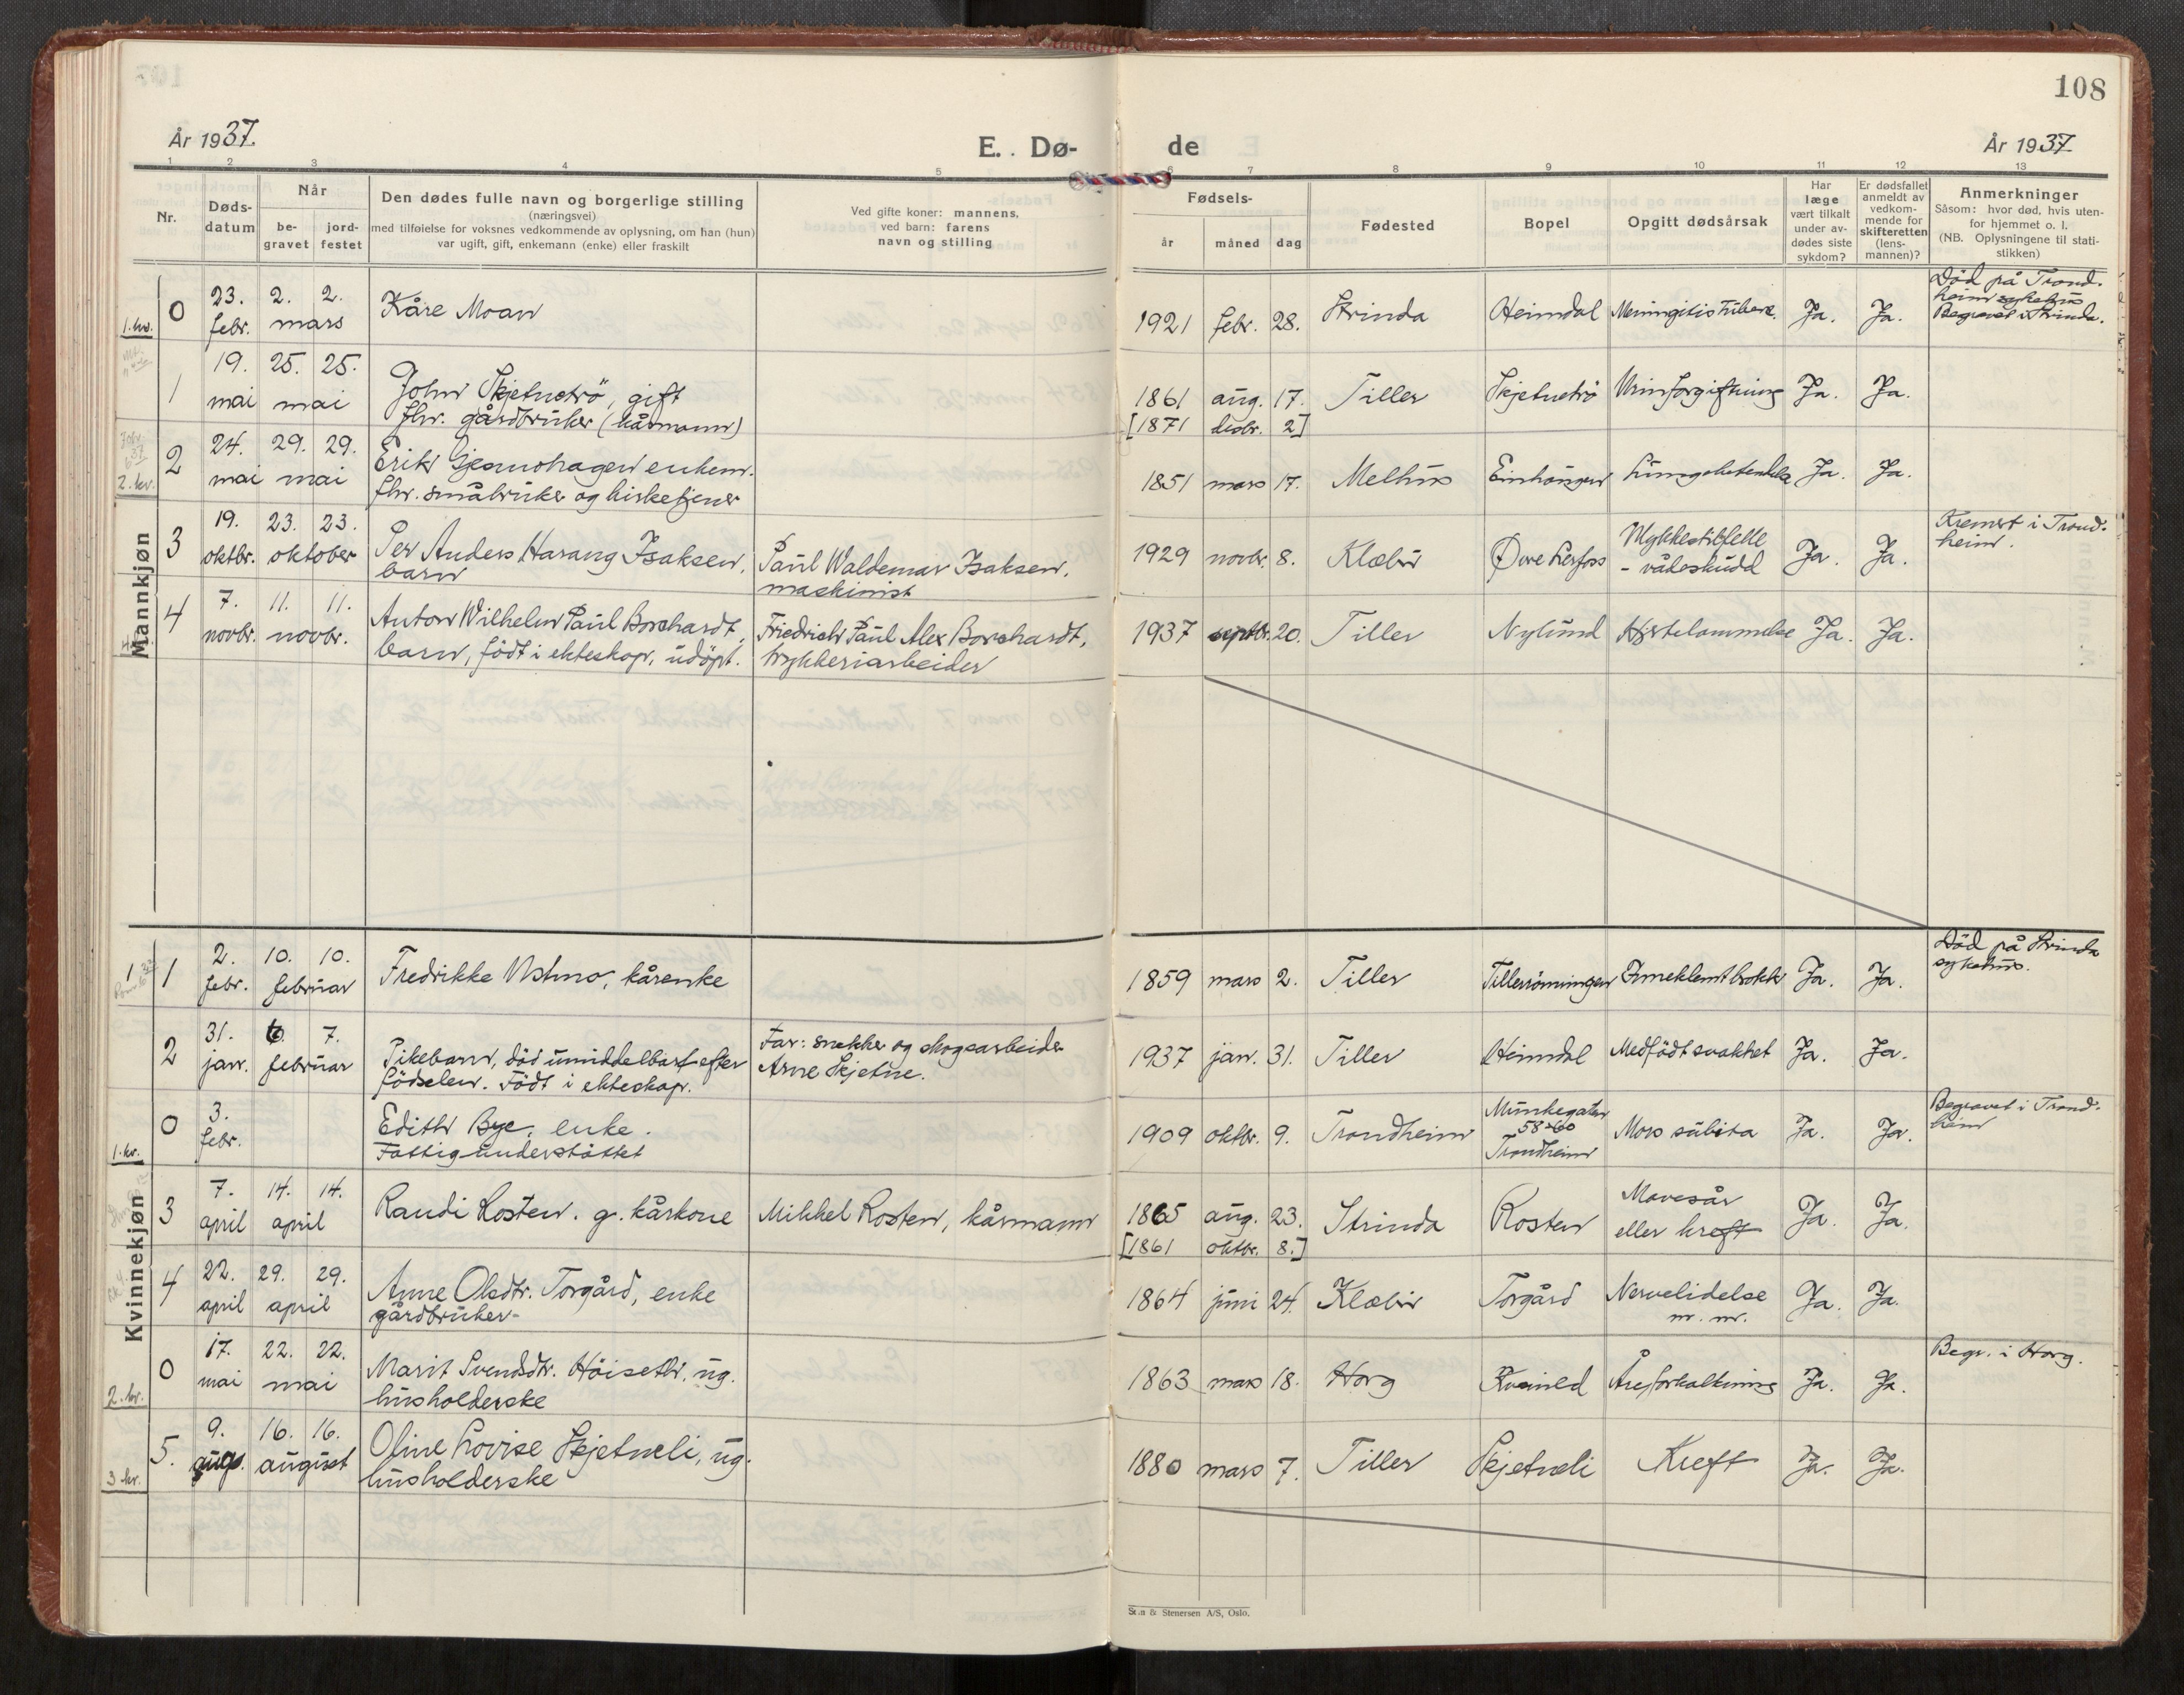 108
År 1937.
E. Dø-
de
År 1937
1 2 3 4 5 6 7 8 9 10 11 12 13
Nr.
Døds-
datum
Når
be-
gravet
jord-
festet
Den dødes fulle navn og borgerlige stilling
(næringsvei)
med tilføielse for voksnes vedkommende av oplysning, om han (hun)
var ugift, gift, enkemann (enke) eller fraskilt
Ved gifte koner: mannens,
ved barn: farens
navn og stilling
Fødsels-
år måned dag
Fødested
Bopel
Opgitt dødsårsak
Har
læge
vært tilkalt
under av-
dødes siste
sykdom?
Er dødsfallet
anmeldt av
vedkom-
mende for
skifteretten
(lens-
mannen)?
Anmerkninger
Såsom: hvor død, hvis uten-
for hjemmet o. l.
(NB. Oplysningene til stati-
stikken)
Mannkjøn
1. kv.
0 23. 2. 2.
febr. mars
Kåre Moan
1921 febr. 28. Strinda Heimdal Meningitis tuberc. Ja. Ja.
Død på Trond-
heim sykehus
Begravet i Strinda.
1 19. 25. 25.
mai mai
John Skjetnetrö, gift
fhv. gårdbruker (kårmann)
1861 aug. 17. Tiller Skjetnetrö Urinforgiftning Ja. Ja.
[1871 desbr. 2]
2. kv.
2 24. 29. 29.
mai mai
Erik Gjenvohagen enkem.
fhv. småbruker og kirketjener
1851 mars 17. Melhus Einhaugen Ja. Ja.
3 19. 23. 23.
oktbr. oktober
Per Anders Harang Isaksen,
barn
Paul Waldemar Isaksen,
maskinist
1929 novbr. 8. Klæbu Øvre Lerfoss
Ulykkestilfelle
- vådeskudd
Ja. Ja.
Kremert i Trond-
heim.
4 7. 11. 11.
novbr. novbr.
Anton Wilhelm Paul Borchardt,
barn, född i ekteskap, udöpt.
Friedrich Paul Alex Borchardt,
trykkeriarbeider
1937 septbr. 20. Tiller Nylund Hjertelammelse Ja. Ja.
Kvinnekjøn
1 2. 10. 10.
febr. februar
Fredrikke Ustmo, kårenke
1859 mars 2. Tiller Tillerrömningen Inneklemt brokk Ja. Ja.
Död på Strinda
sykehus.
2 31. 6. 7.
jan. februar
Pikebarn, död umiddelbart efter
födselen. Födt i ekteskap.
Far: snekker og skogsarbeider
Arne Skjetne.
1937 jan. 31. Tiller Heimdal Medfödt svakhet Ja. Ja.
1. kv.
0 3.
febr.
Edith Bye, enke.
Fattigunderstöttet
1909 oktbr. 9. Trondheim
Munkegaten
58-60
Trondheim
Mors subita Ja. Ja.
Begravet i Trond-
heim
3 7. 14. 14.
april april
Randi Rosten. g. kårkone
Mikkel Rosten, kårmann
1865 aug. 23. Strinda Rosten
Mavesår
eller kreft
Ja. Ja.
[1861 oktbr. 8.]
4 22. 29. 29.
april april
Anne Olsdtr. Torgård, enke
gårdbruker-
1864 juni 24. Klæbu Torgård
Nervelidelse
m. m.
Ja. Ja.
2. kv.
0 17. 22. 22.
mai mai
Marit Svendsdtr. Höiseth, ug.
husholderske
1863 mars 18. Horg Kvammen Åreforkalkning Ja. Ja.
Begr. i Horg.
3 kv.
5. 9. 16. 16.
aug. august
Oline Lovise Skjetneli, ug.
husholderske
1880 mars 7. Tiller Skjetneli Kreft Ja. Ja.
Sem & Stenersen A/S, Oslo.